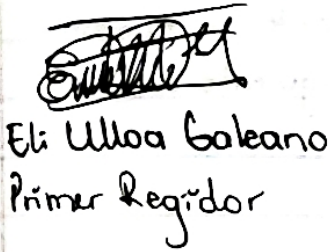 Eli Ulloa Galeano
Primer Regidor